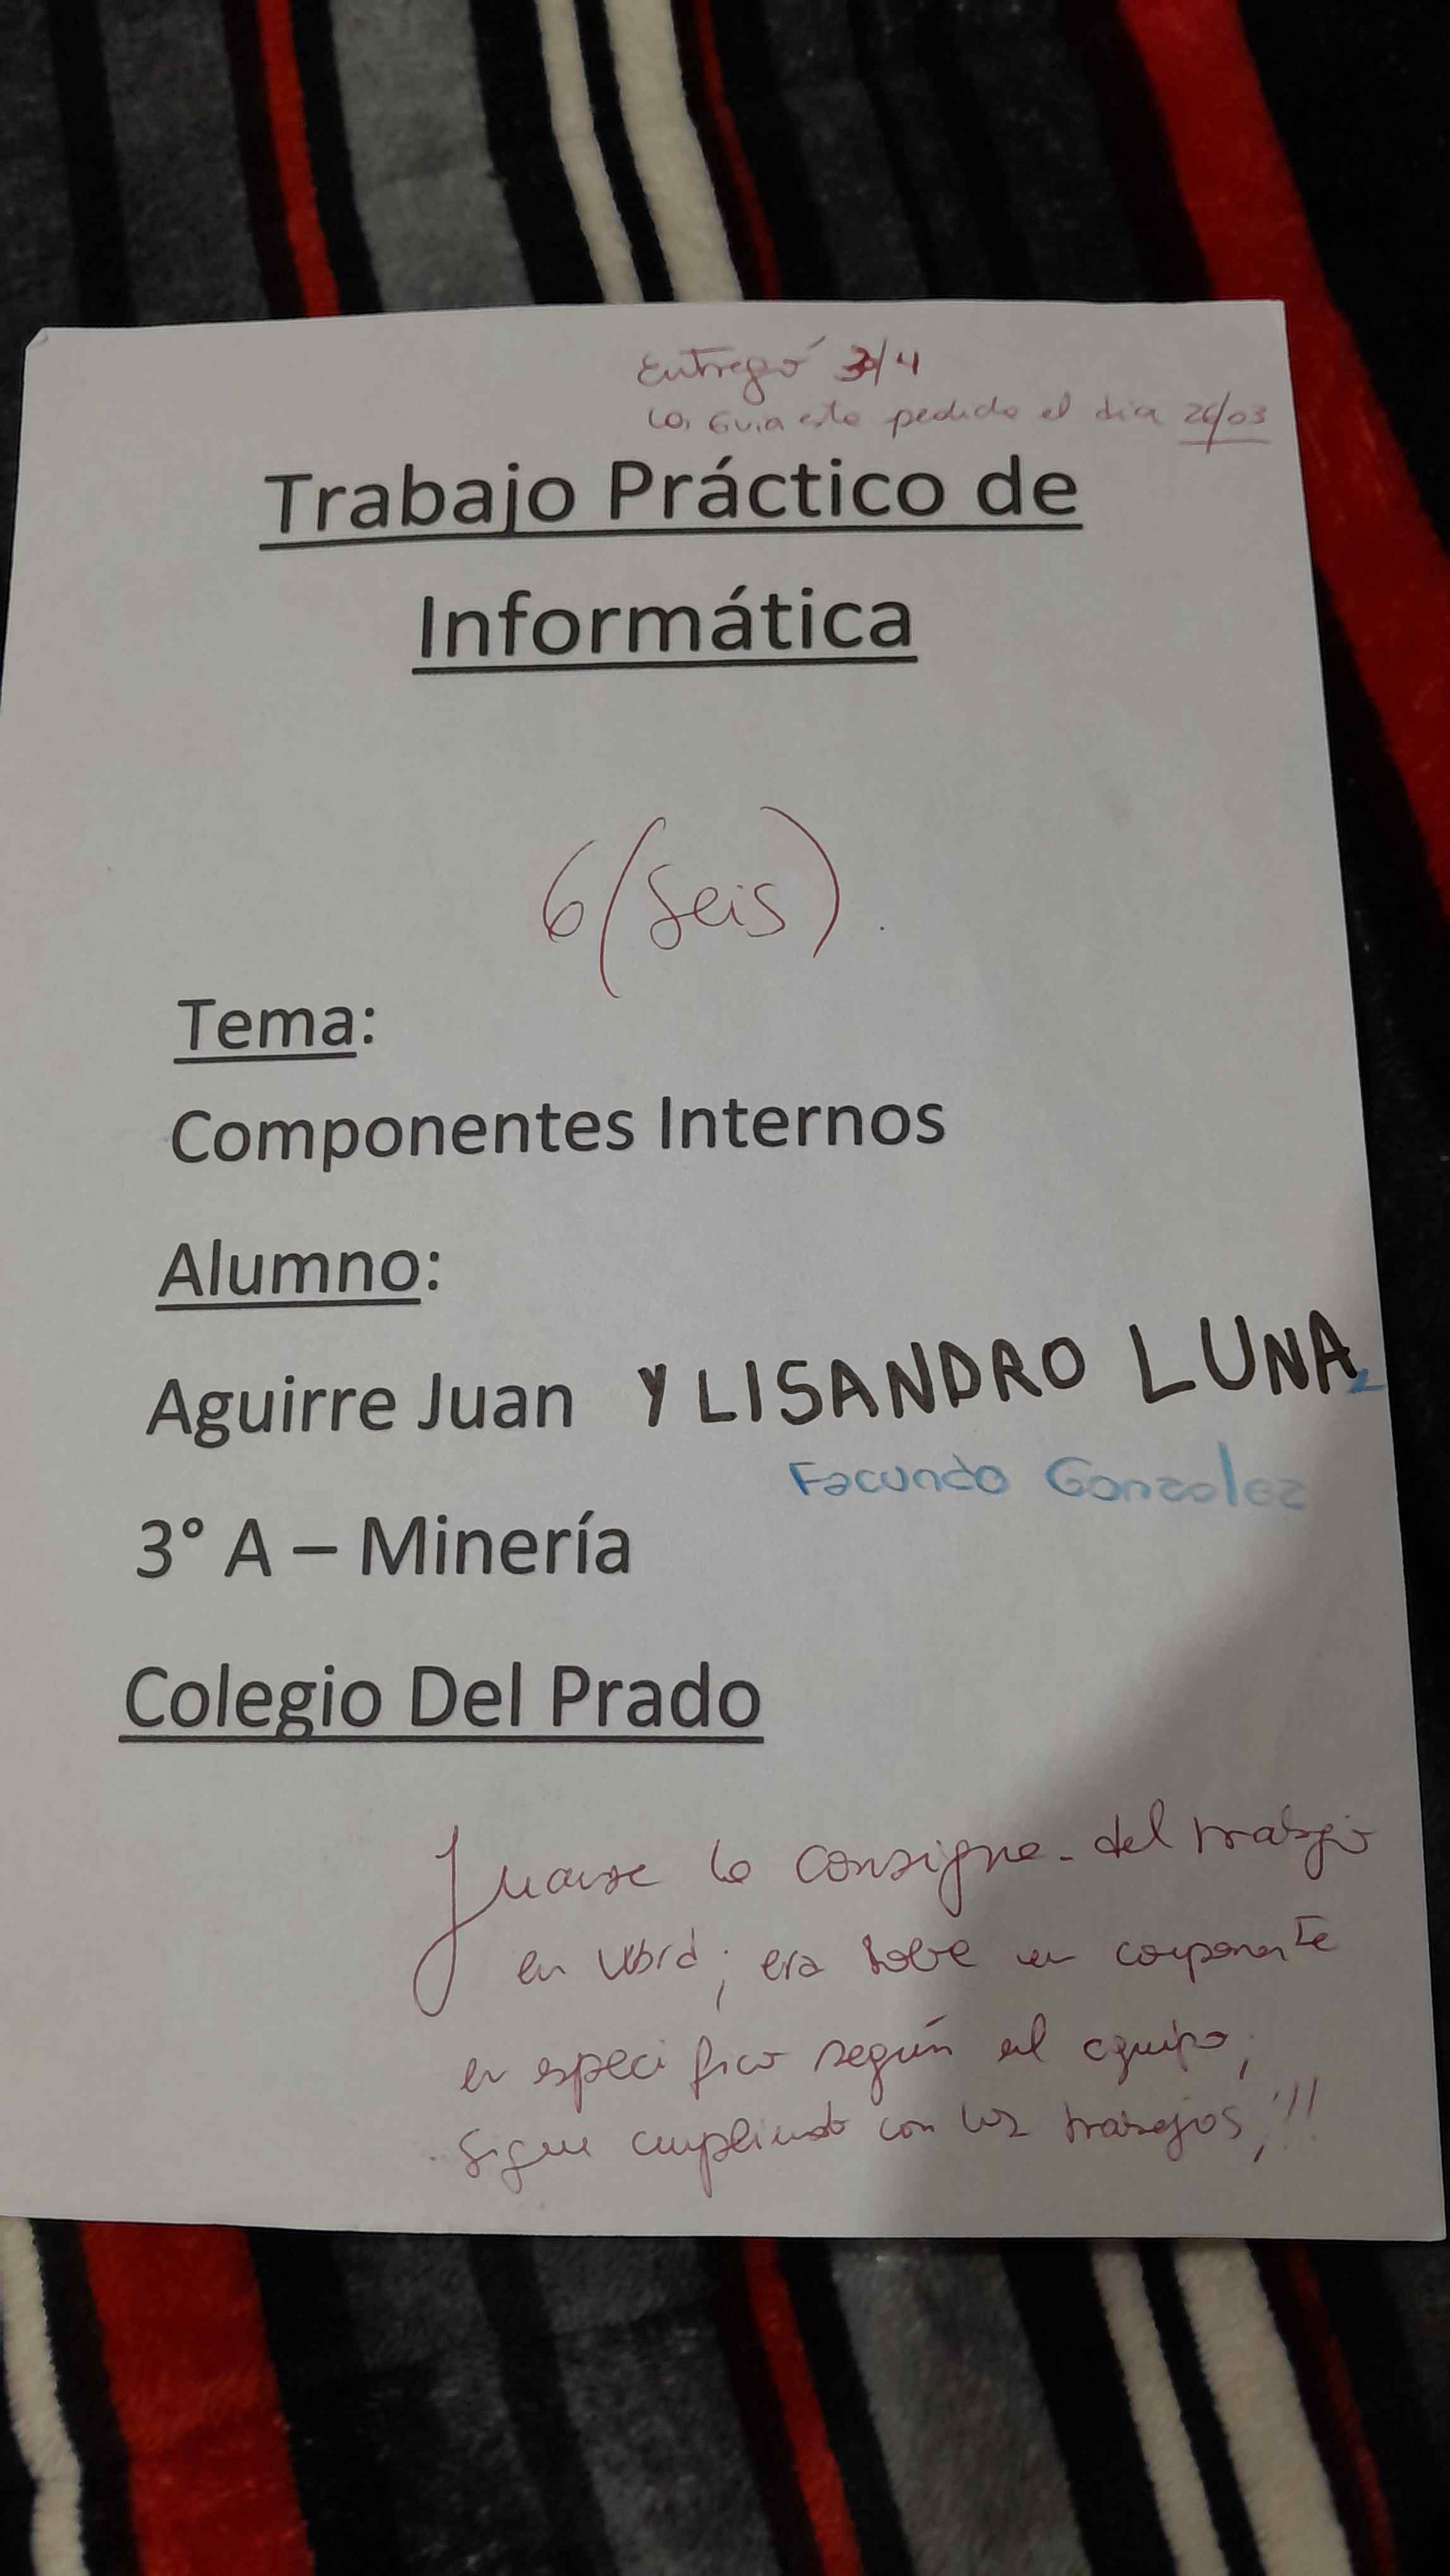 Entregó 3/4
La Guia esta pedida el dia 26/03
Trabajo Práctico de
Informática
6 (Seis).
Tema:
Componentes Internos
Alumno:
Aguirre Juan Y LISANDRO LUNA
Facundo Gonzalez
3° A – Minería
Colegio Del Prado
la consigna del trabajo
en Word; era sobre un componente
en especifico según el equipo,
Sigue cumpliendo con los trabajos,!!